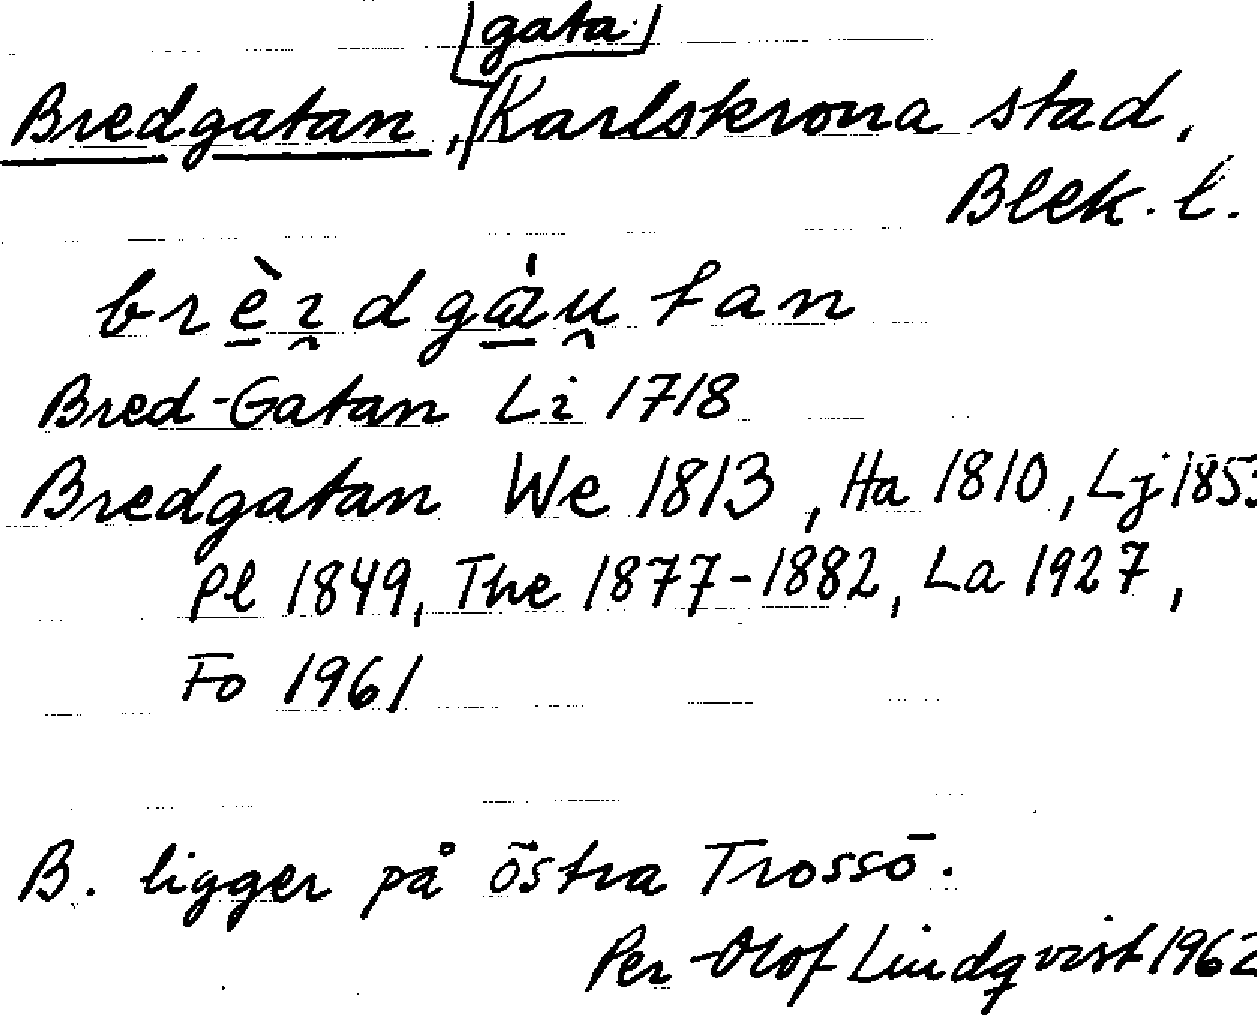 gata
Bredgatan, Karlskrona stad,
Blek. l.
Bred-Gatan Li 1718
Bredgatan We 1813, Ha 1810, Lj 1853
Pl 1849, The 1877-1882, La 1927,
Fo 1961
B. ligger på östra Trossö.
Per-Olof Lindqvist 1962